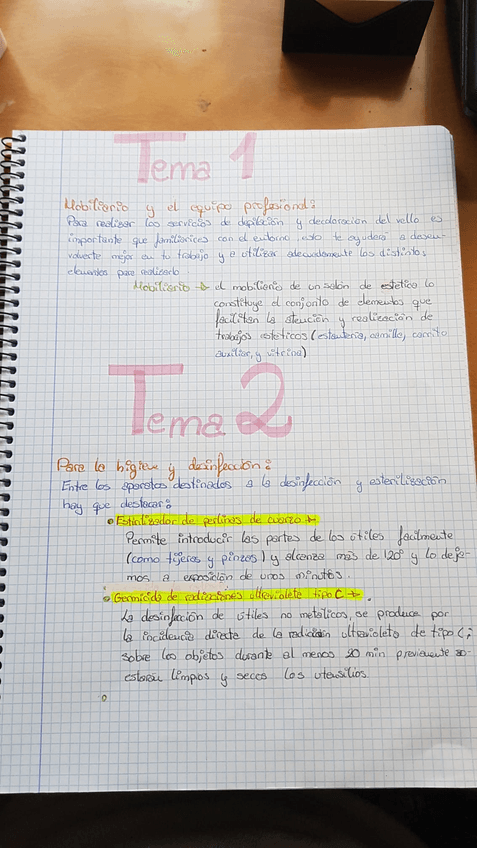 Tema 1
Mobiliario y el equipo profesional:
Para realizar los servicios de depilación y decoloración del vello es
importante que familiarices con el entorno, esto te ayudará a desen-
volverte mejor en tu trabajo y a utilizar adecuadamente los distintos
elementos para realizarlo
Mobiliario → el mobiliario de un salón de estética lo
constituye el conjunto de elementos que
facilitan la atención y realización de
trabajos esteticos (estantería, camilla, carrito
auxiliar, y vitrina)
Tema 2
Para la higiene y desinfección:
Entre los aparatos destinados a la desinfección y esterilización
hay que destacar:
• Esterilizador de perlinas de cuarzo →
Permite introducir las partes de los útiles facilmente
(como tijeras y pinzas) y alcanza más de 120º y lo deja-
mos a exposición de unos minutos.
• Germicida de radiaciones ultravioleta tipo C →
La desinfección de útiles no metálicos, se produce por
la incidencia directa de la radiación ultravioleta de tipo C;
sobre los objetos durante al menos 20 min previamente
estarán limpios y secos los utensilios